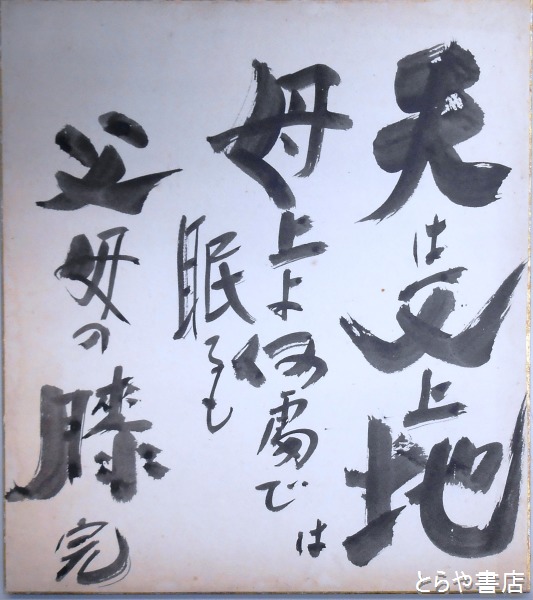 天は父上地は
母上よ何處で
眠るも
父母の膝
完
とらや書店